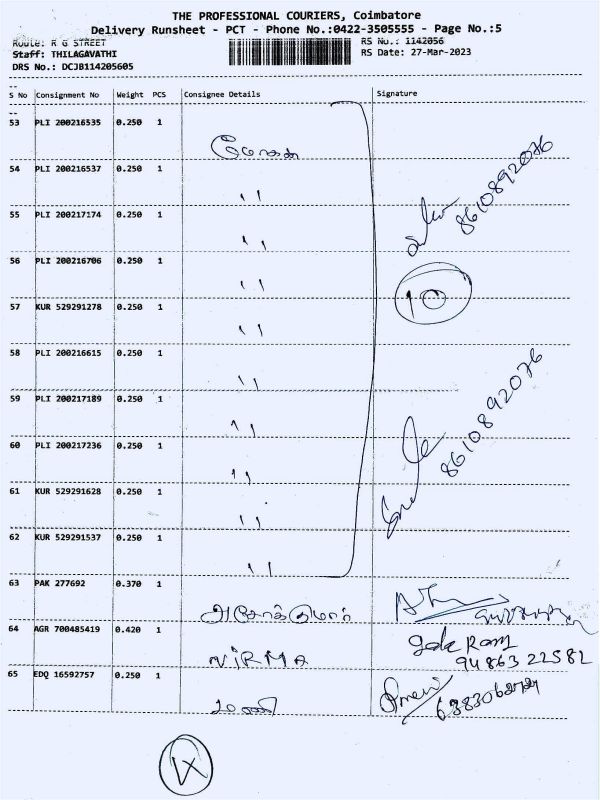 THE PROFESSIONAL COURIERS, Coimbatore
Delivery Runsheet - PCT - Phone No.:0422-3505555 - Page No.:5
Route: R G STREET
RS No.: 1142056
Staff: THILAGAVATHI
RS Date: 27-Mar-2023
DRS No.: DCJB114205605
S No Consignment No Weight PCS Consignee Details Signature
53 PLI 200216535 0.250 1
54 PLI 200216537 0.250 1 ı ı
8610892076
55 PLI 200217174 0.250 1 ı ı
56 PLI 200216706 0.250 1 ı ı
10
57 KUR 529291278 0.250 1 ı ı
58 PLI 200216615 0.250 1 ı ı
59 PLI 200217189 0.250 1 ı ı
8610892076
60 PLI 200217236 0.250 1 ı ı
61 KUR 529291628 0.250 1 ı ı
62 KUR 529291537 0.250 1 ı ı
63 PAK 277692 0.370 1 அசோக்குமார்
64 AGR 700485419 0.420 1 NIRMA
94863 22582
65 EDQ 16592757 0.250 1